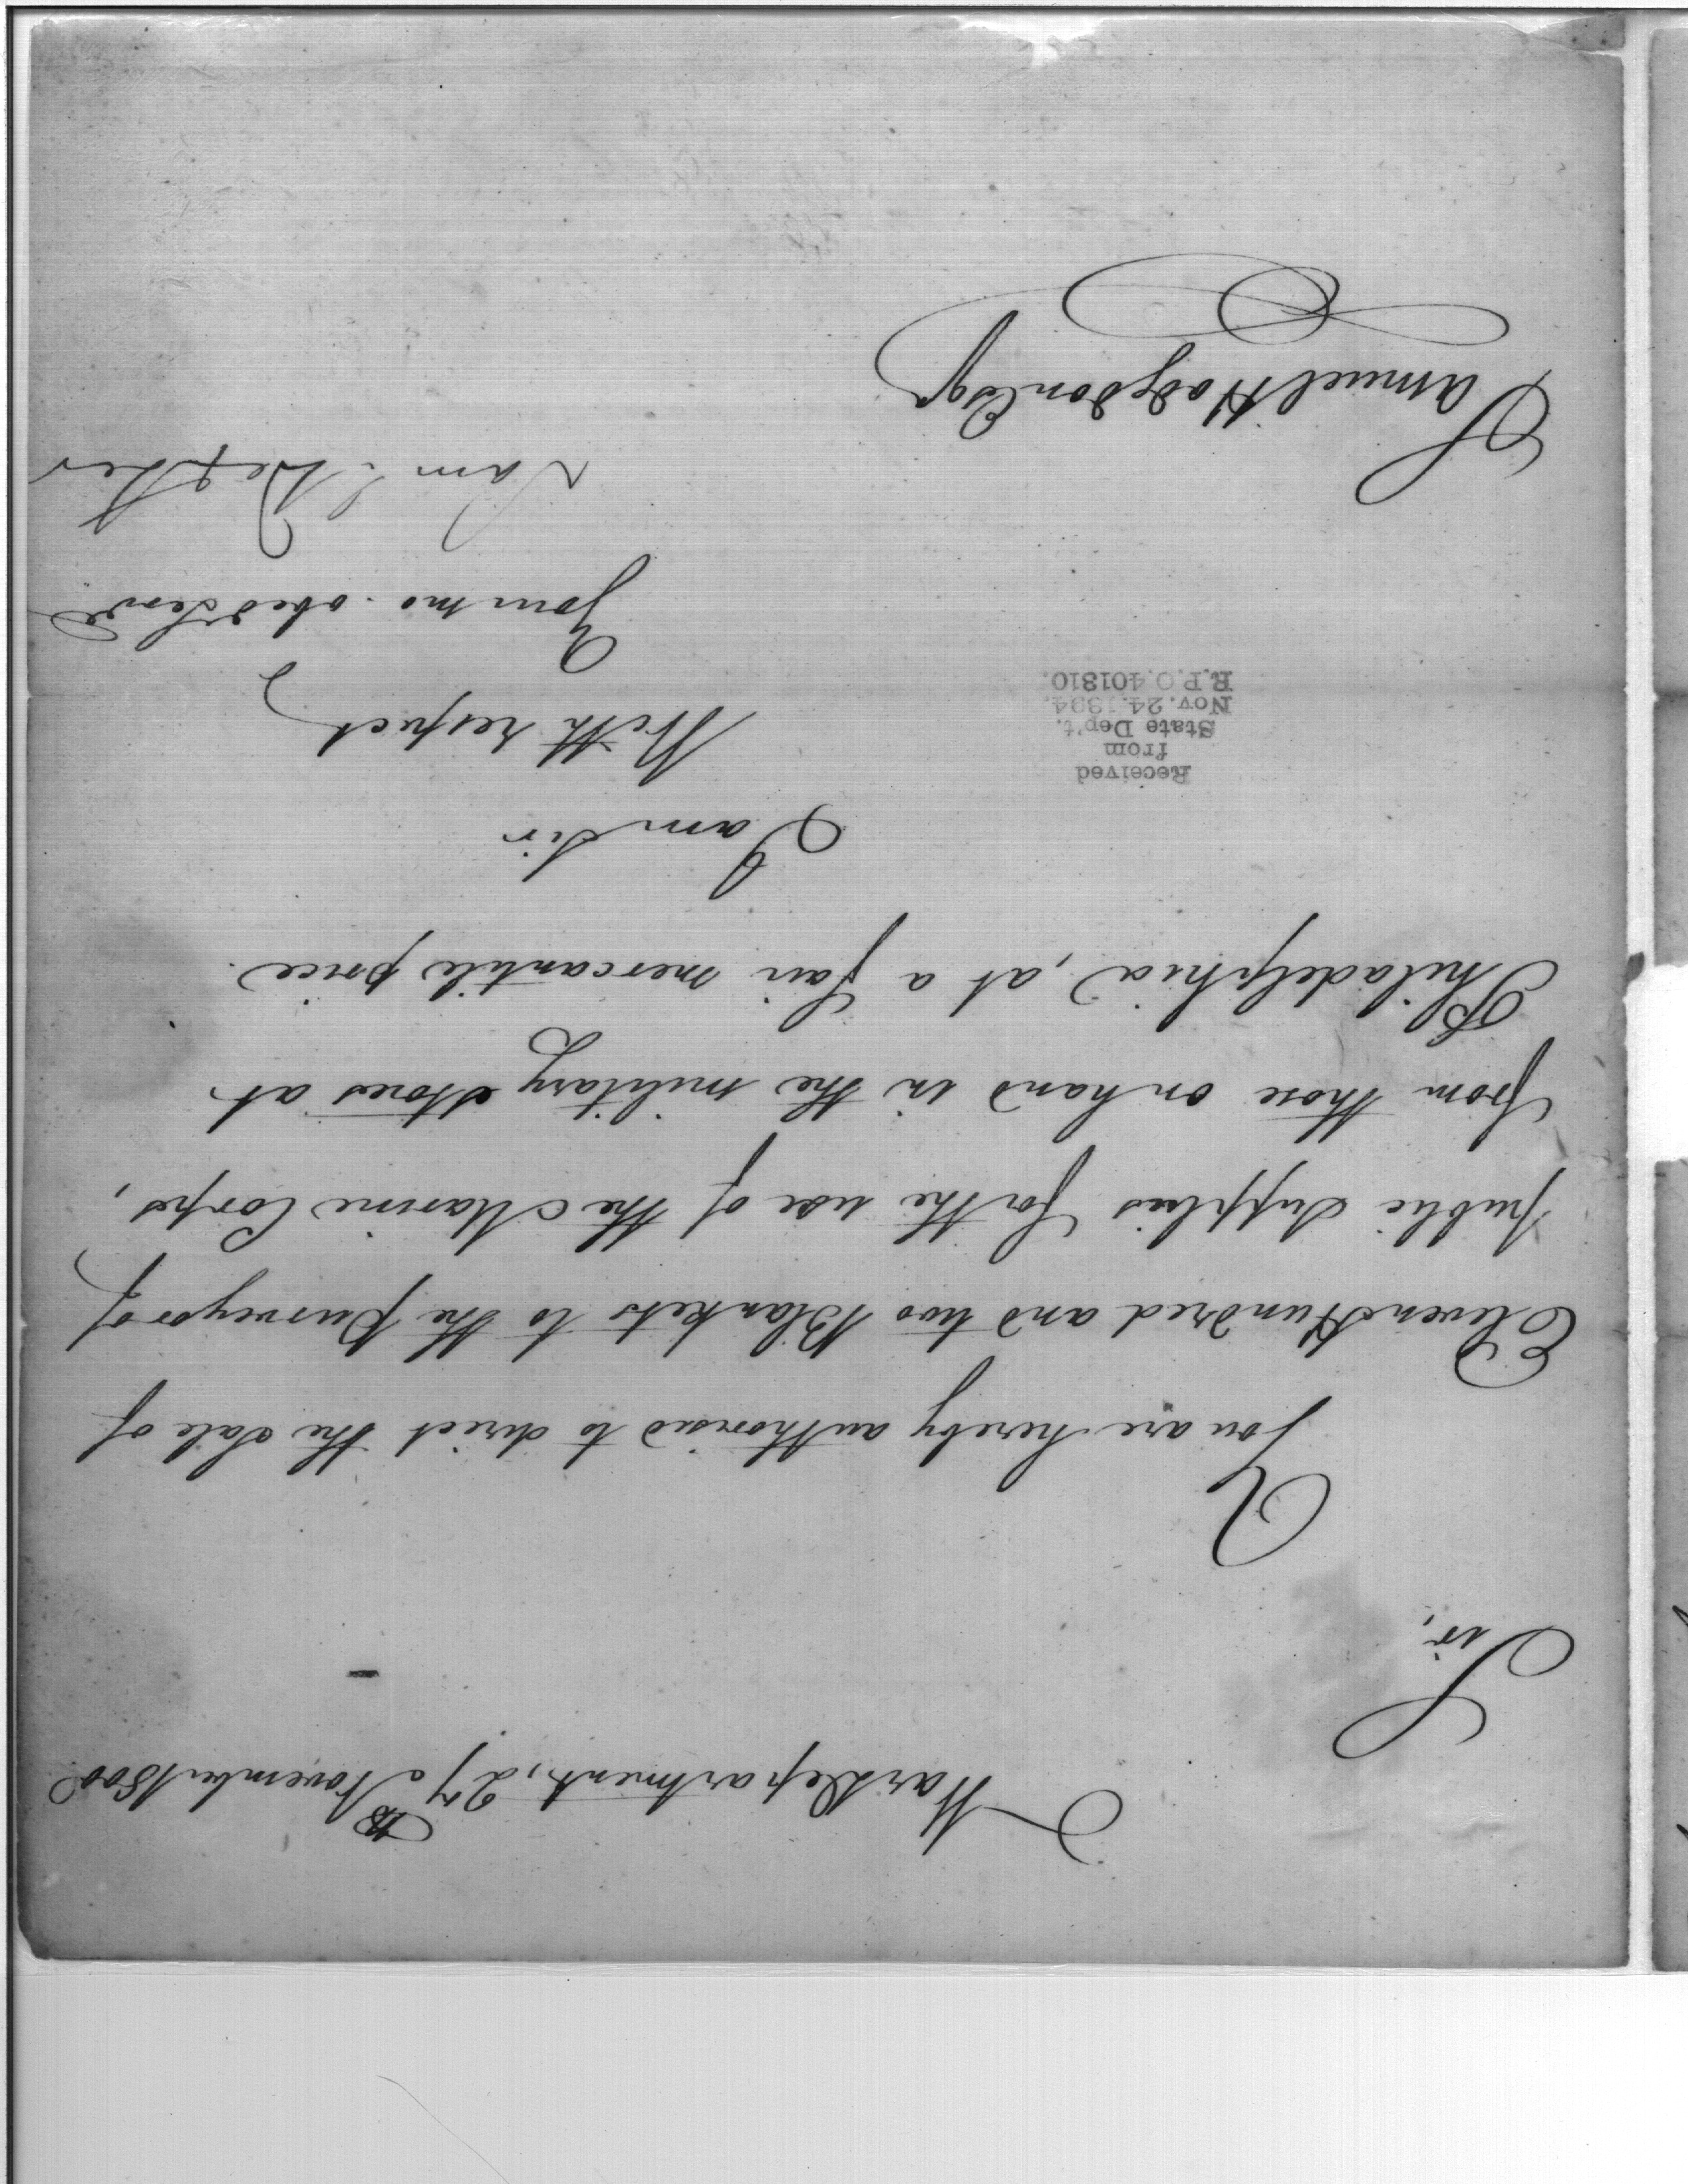 War Department, 27th November 1800
Sir,
You are hereby authorised to direct the sale of
Eleven Hundred and two Blankets to the Purveyor of
public Supplies for the use of the Marine Corps,
from those on hand in the military Stores at
Philadelphia, at a fair mercantile price.
I am Sir
With respect
Your mo. obed Servt
Sam. Dexter
Received
from
State Dep't.
Nov. 24. 1894.
R.P.O. 401810.
Samuel Hodgdon Esqr